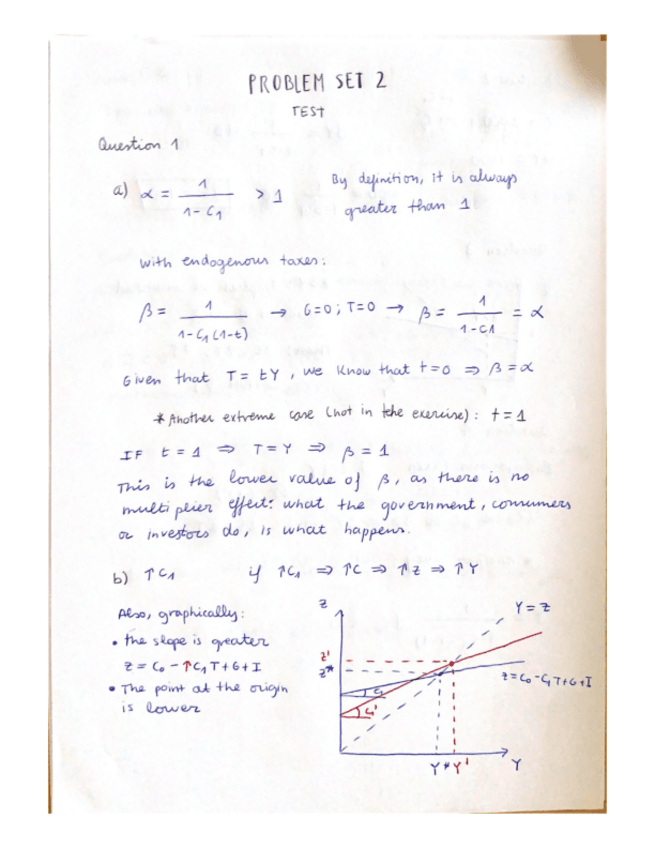 PROBLEM SET 2
TEST
Question 1
a) α = 1 / (1 - C₁) > 1
By definition, it is always
greater than 1
with endogenous taxes:
β = 1 / (1 - C₁(1-t)) → G=0; T=0 → β = 1 / (1 - C1) = α
Given that T = tY, we know that t=0 ⇒ β=α
* Another extreme case (not in the exercise): t=1
IF t = 1 ⇒ T=Y ⇒ β = 1
This is the lower value of β, as there is no
multiplier effect: what the government, consumers
or investors do, is what happens.
b) ↑C₁ if ↑C₁ ⇒ ↑C ⇒ ↑Z ⇒ ↑Y
Also, graphically:
• the slope is greater
Z = C₀ - ↑C₁T+G+I
• The point at the origin
is lower
Z
Y = Z
Z'
Z*
Z = C₀ - C₁T+G+I
C₁
C₁'
Y* Y'
Y